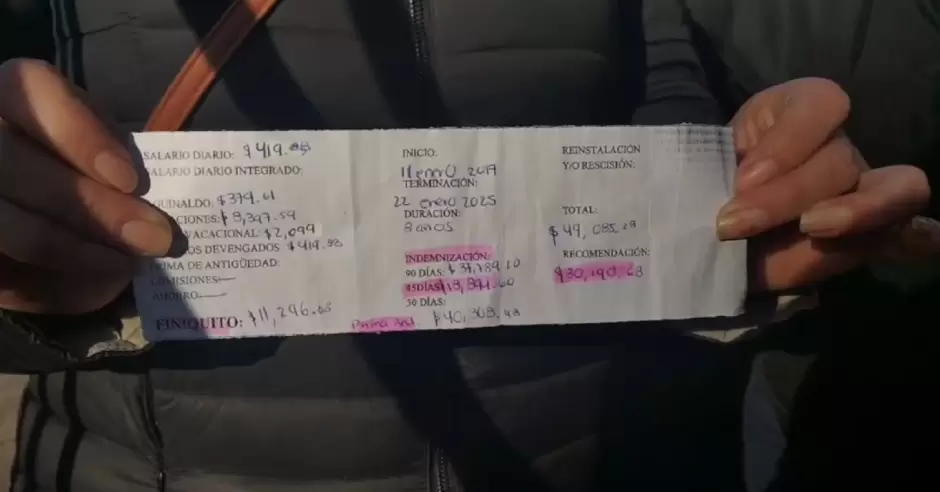 SALARIO DIARIO: $419.88
SALARIO DIARIO INTEGRADO:
GUINALDO: $379.61
CIONES: $8,397.59
VACACIONAL: $2,099
OS DEVENGADOS $419.88
PRIMA DE ANTIGÜEDAD:
COMISIONES
AHORRO
FINIQUITO: $11,296.08
INICIO:
11 enero 2017
TERMINACIÓN:
22 enero 2025
DURACIÓN:
8 años
INDEMNIZACIÓN:
90 DÍAS: $37,789.20
45 DÍAS: $18,894.60
30 DÍAS:
Prima Ant $40,308.48
REINSTALACIÓN
Y/O RESCISIÓN:
TOTAL:
$49,085.28
RECOMENDACIÓN:
$30,190.68